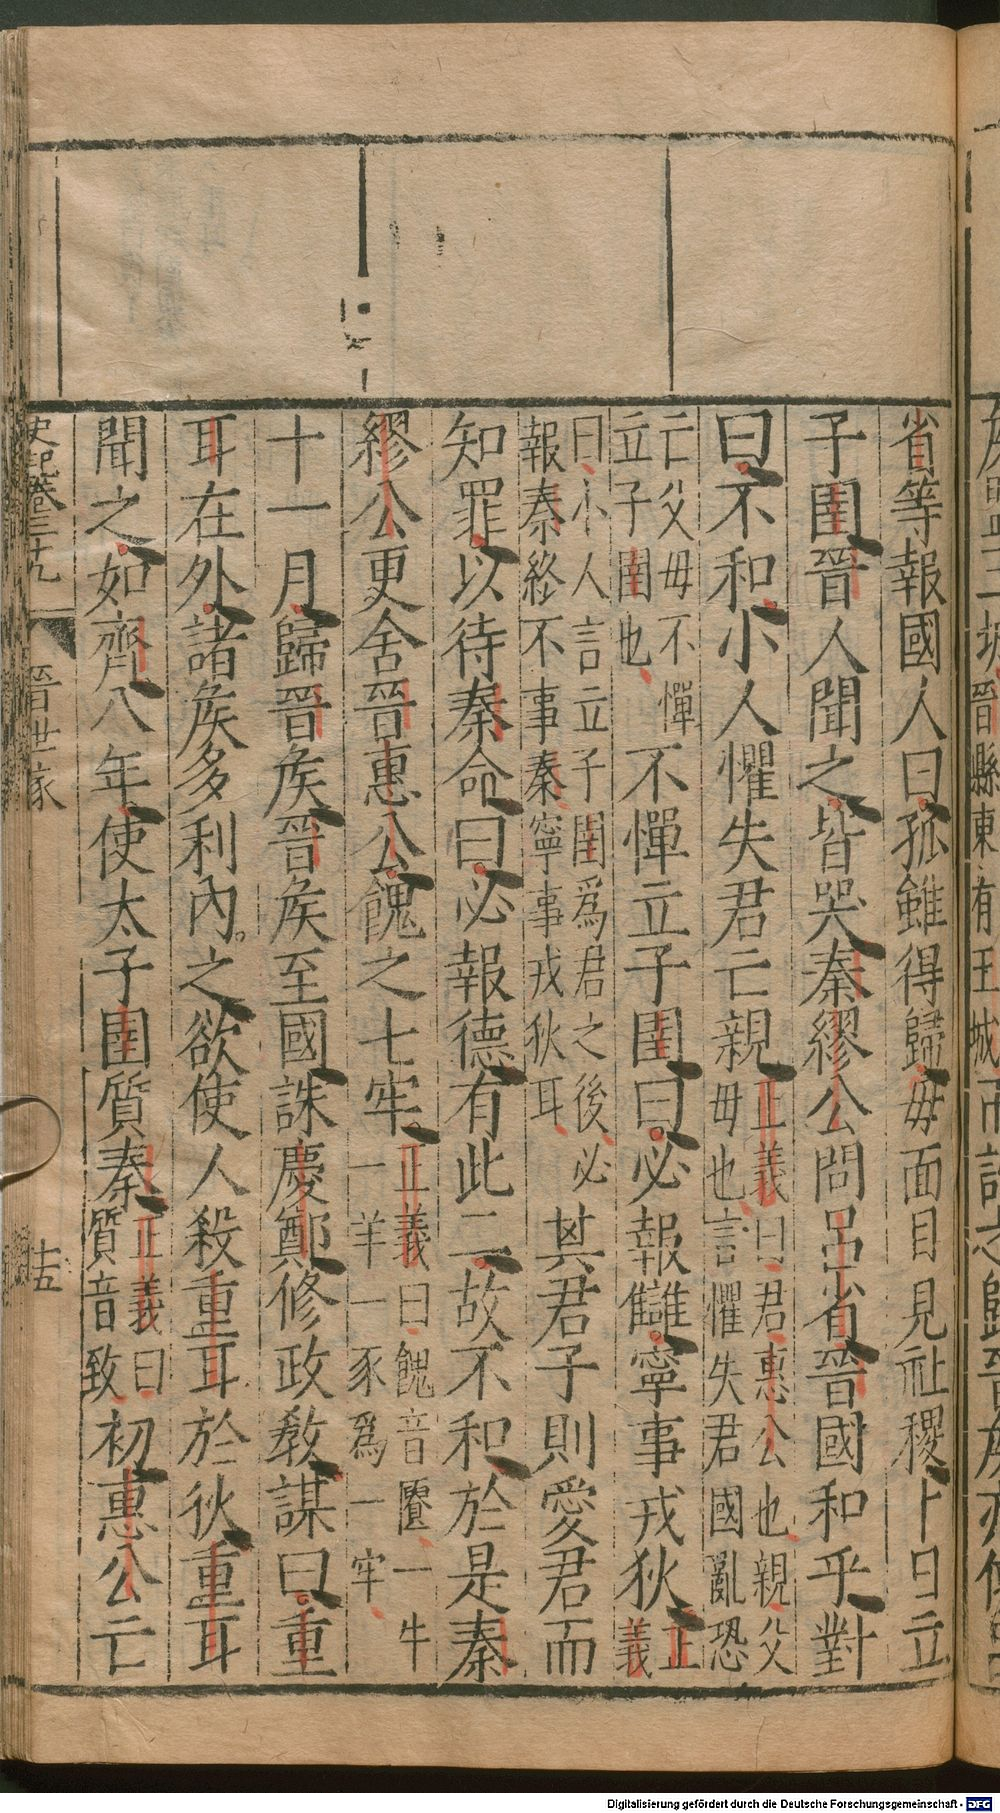 省等報國人曰孤雖得歸毋面目見社稷卜日立
子圉晉人聞之皆哭秦繆公問呂省晉國和乎對
曰不和小人懼失君亡親正義曰君惠公也親父
毋也言懼失君國亂恐
亡父毋不憚
立子圉也不憚立子圉曰必報讎寧事戎狄正
義
曰小人言立子圉爲君之後必
報秦終不事秦寧事戎狄耳其君子則愛君而
知罪以待秦命曰必報德有此二故不和於是秦
繆公更舍晉惠公餽之七牢正義曰餽音匱一牛
一羊一豕爲一牢
十一月歸晉矦晉矦至國誅慶鄭修政教謀曰重
耳在外諸矦多利內之欲使人殺重耳於狄重耳
聞之如齊八年使太子圉質秦正義曰
質音致初惠公亡
史記卷三十九
晉世家
十五
晉縣東有王城
Digitalisierung gefördert durch die Deutsche Forschungsgemeinschaft - DFG